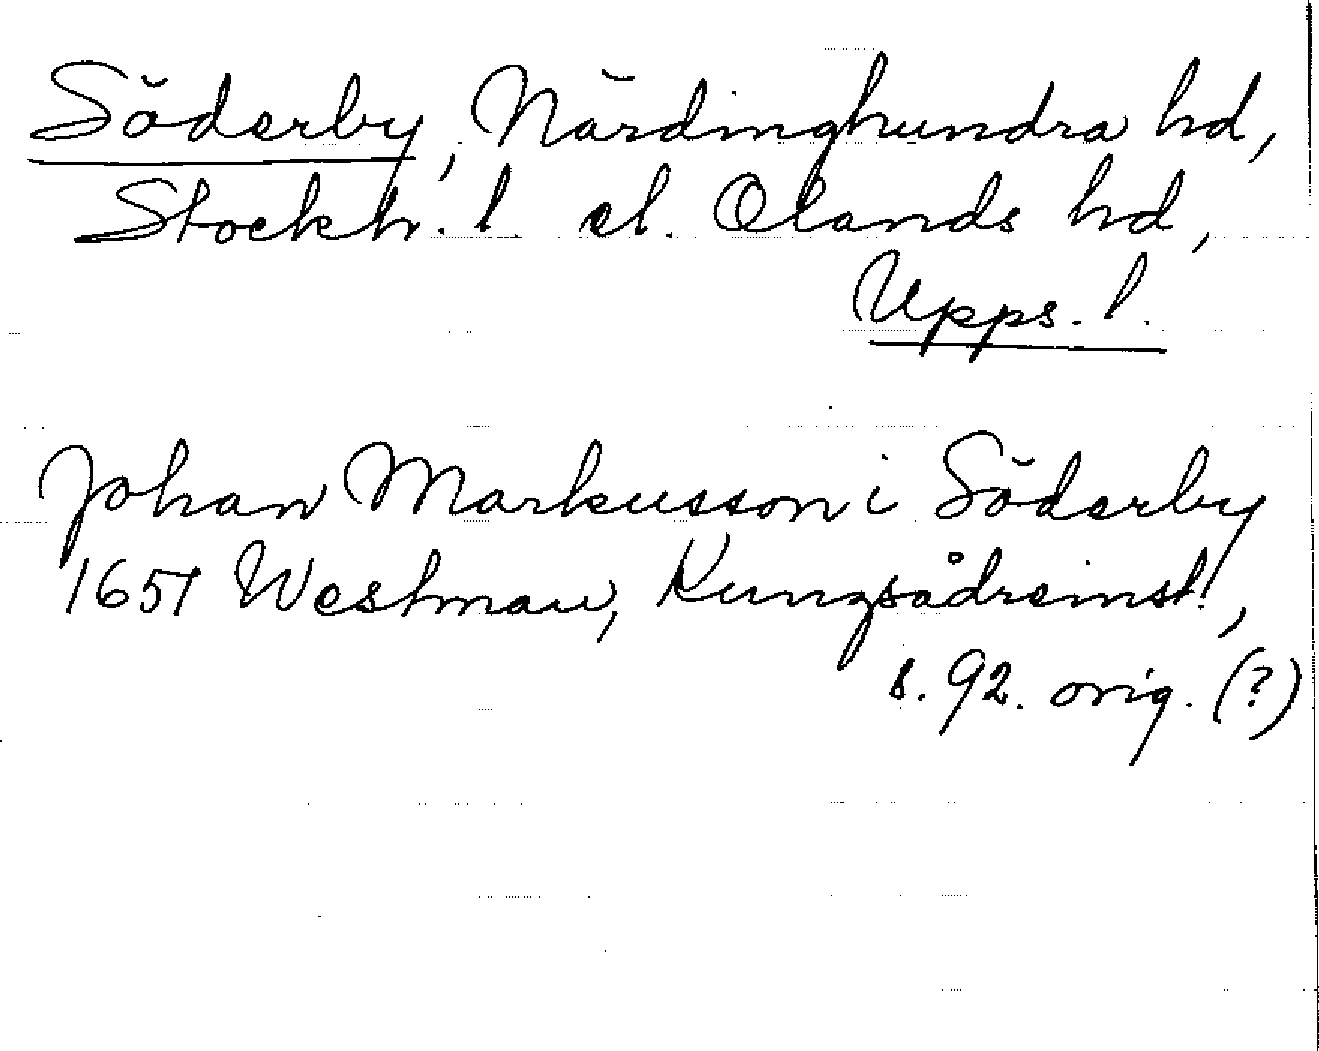 Söderby, Närdinghundra hd,
Stockh. l. el. Olands hd,
Upps. l.
Johan Markusson i Söderby
1651 Westman, Kungsådreinst!,
s. 92. orig. (?)